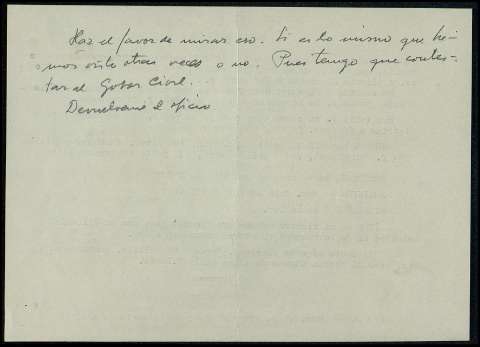 Haz el favor de mirar eso. Si es lo mismo que he-
mos visto otras veces o no. Pues tengo que contes-
tar al Gobor Civil.
Devuelvame el oficio